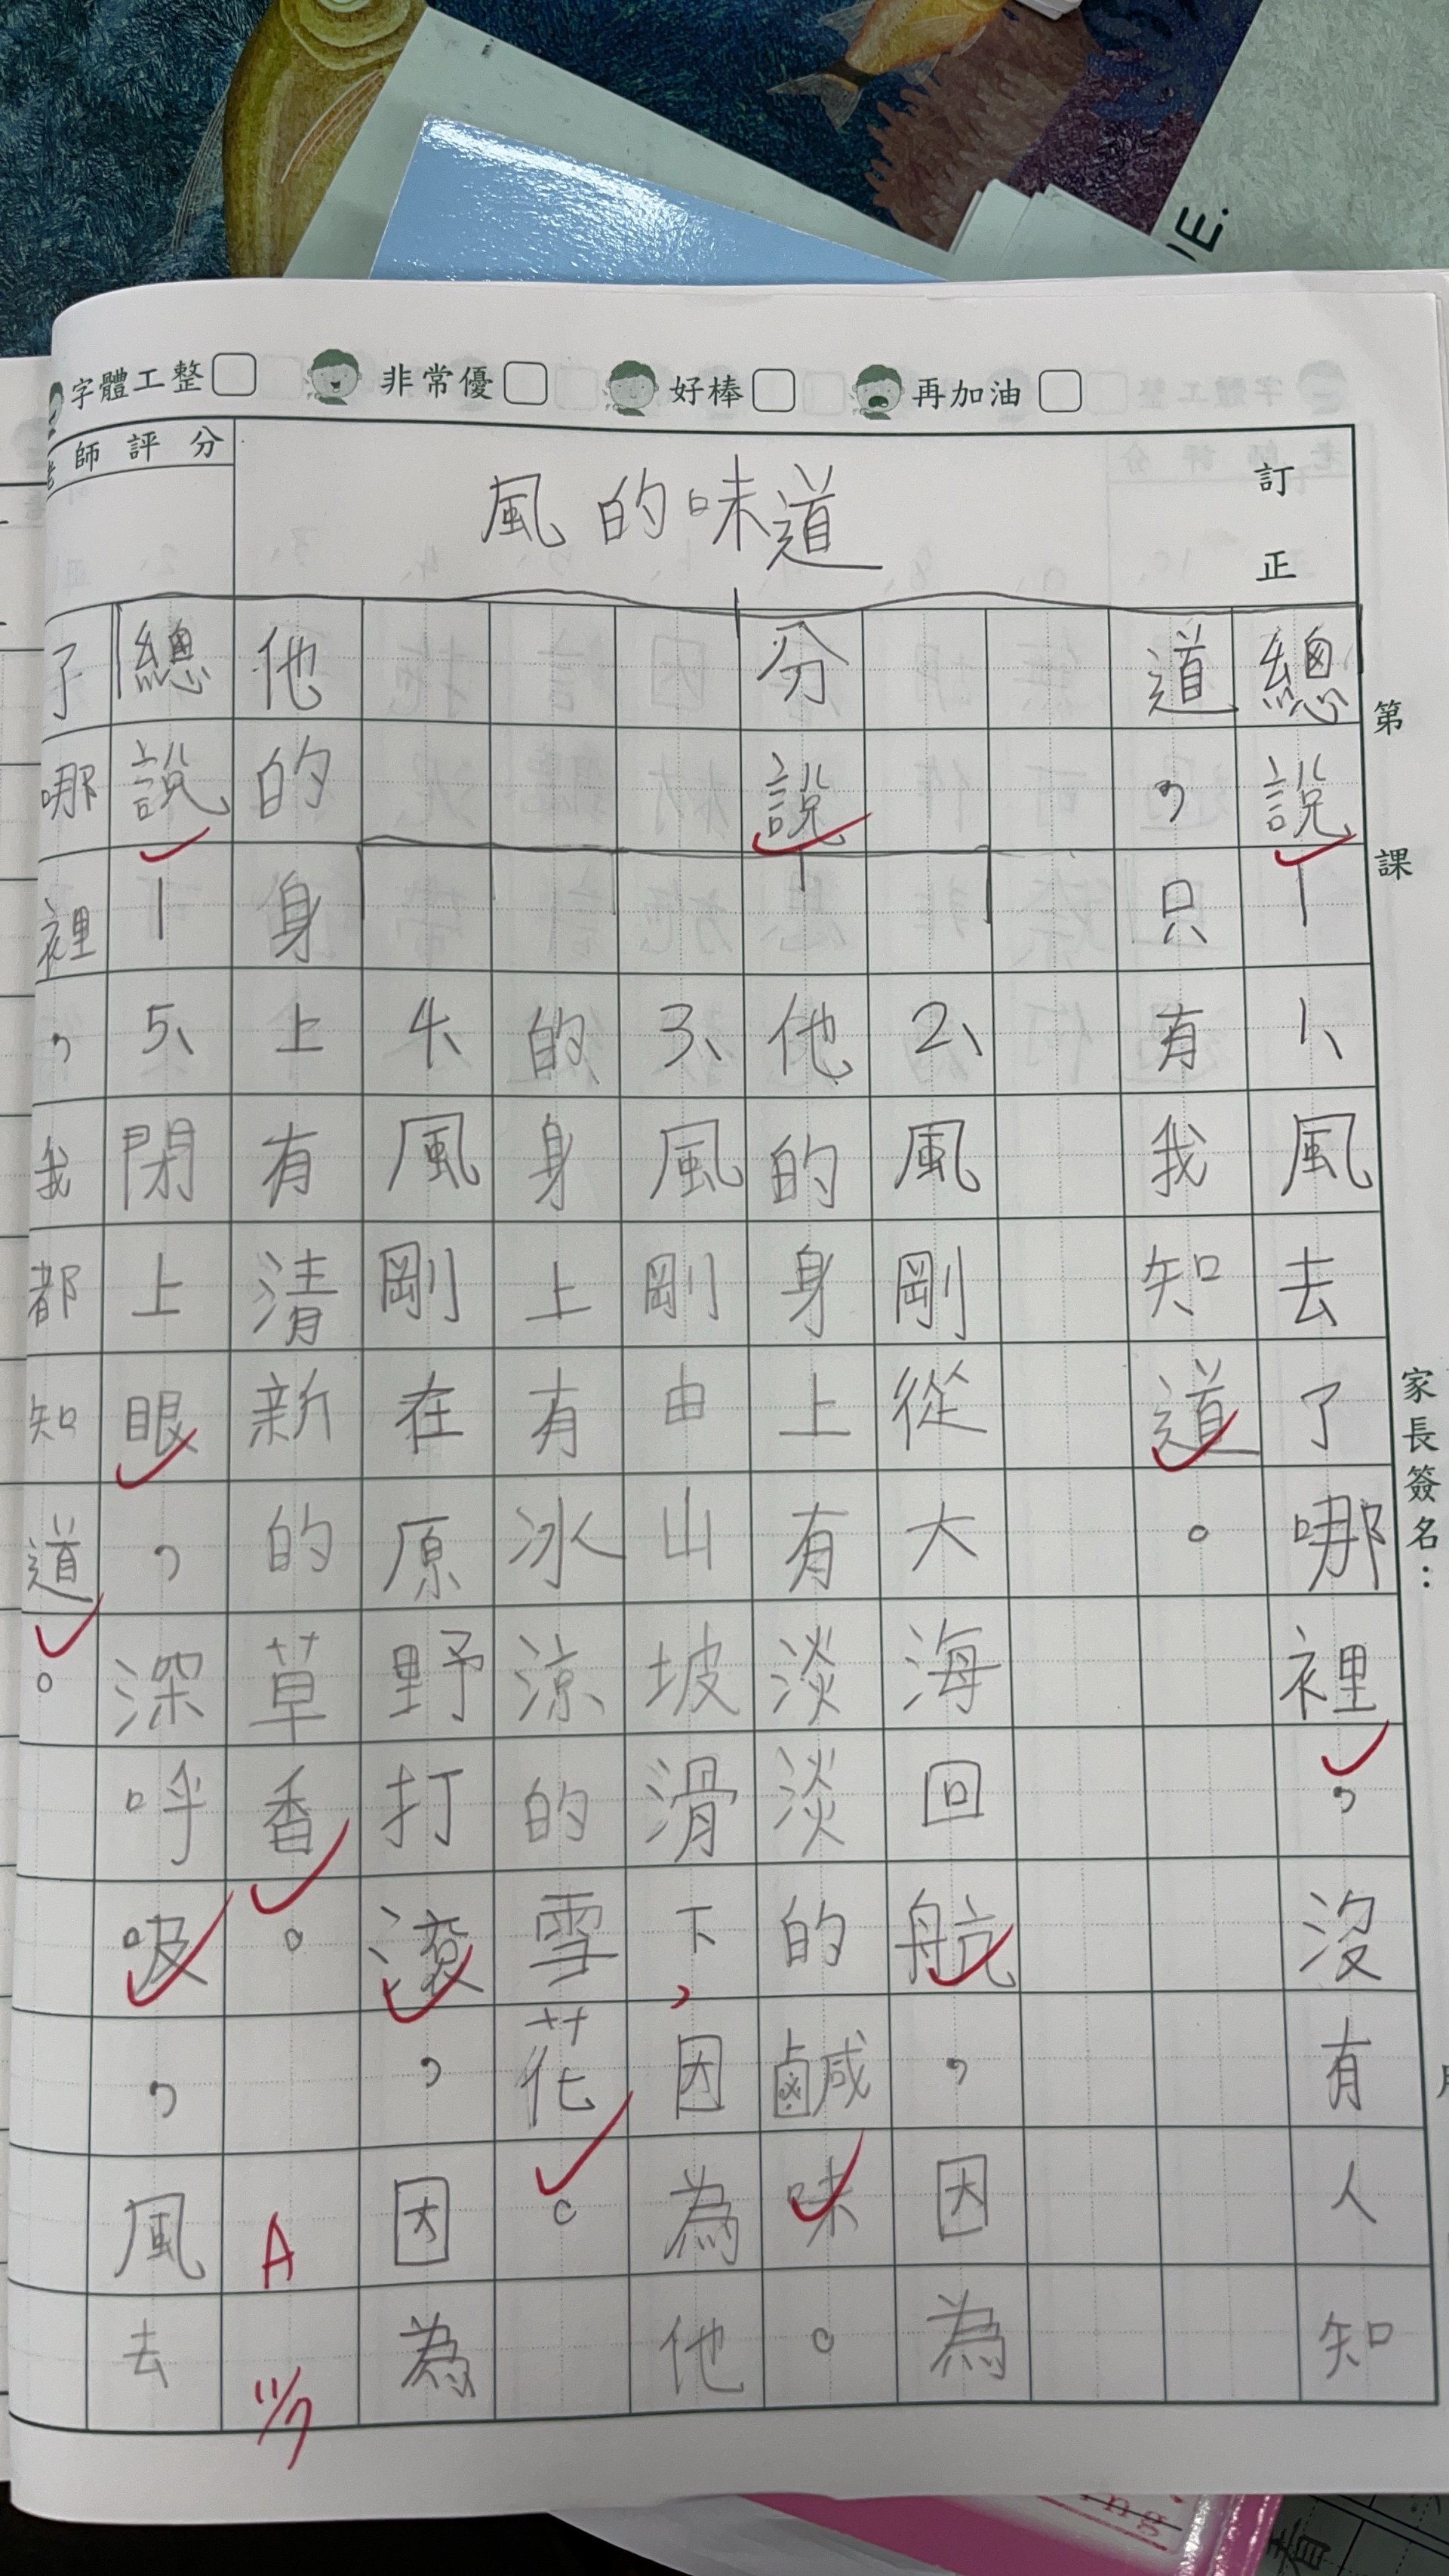 字體工整 非常優 好棒 再加油
老師評分
風的味道
訂正
第 課
家長簽名：
總說 1、風去了哪裡，沒有人知
道，只有我知道。
2、風剛從大海回航，因為
分說 他的身上有淡淡的鹹味。
3、風剛由山坡滑下，因為他
的身上有冰涼的雪花。
4、風剛在原野打滾，因為
他的身上有清新的草香。
A 11/7
總說 5、閉上眼，深呼吸，風去
了哪裡，我都知道。